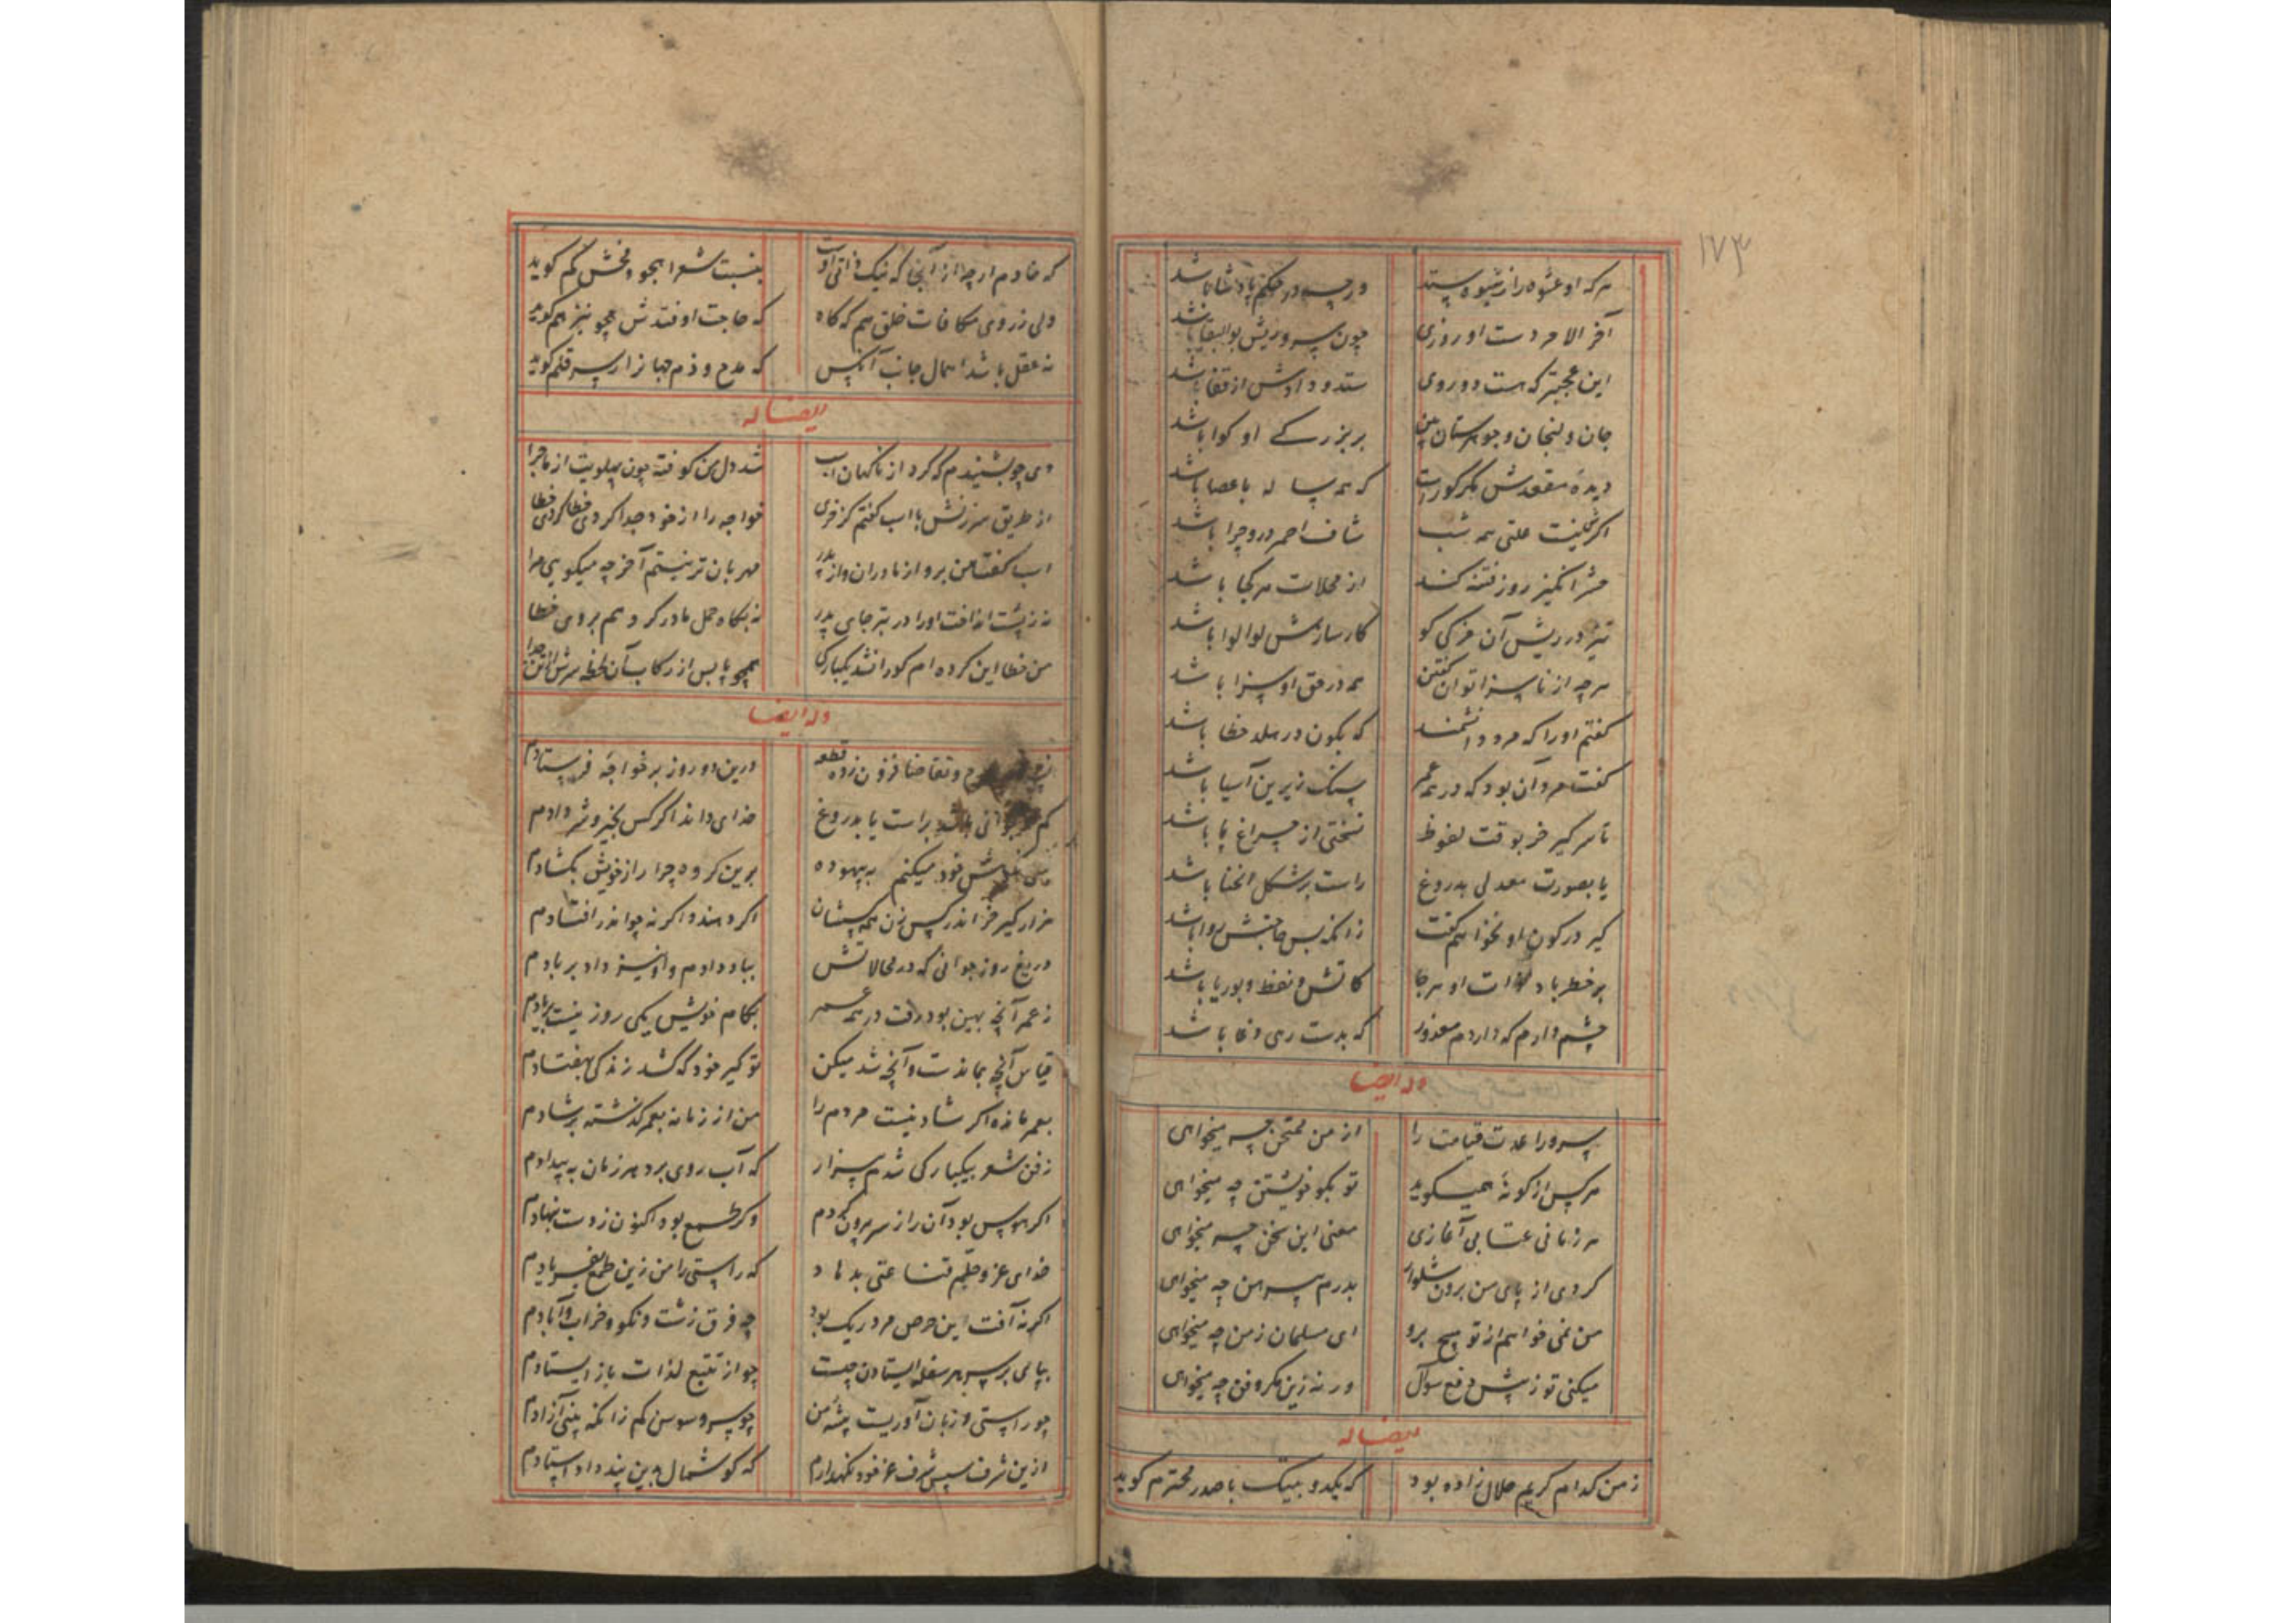 ۱۷۳
هر که او عشوه را ز شیوه پسندد ورچه در حکم پادشا باشد
آخر الامر دست او روزی چون سر و ریش بوالبقا باشد
این عجبتر که هست دو روی ستد و دادش از قفا باشد
جان و لنجان و جوهرستان بین بر بزرگی او گوا باشد
دیده مقعدش مگر کورست که همه ساله با عصا باشد
اگرش نیست علتی همه شب شاف احمر درو چرا باشد
حشر انگیز روز فتنه کند از محلات هر کجا باشد
تیز در ریش آن خزکی کو کارسازیش لوالوا باشد
هر چه از ناسزا توان گفتن همه در حق او سزا باشد
گفتم او را که مرد دانشمند که بکون در هلد خطا باشد
گفت مرد آن بود که در همه عمر سنگ زیرین آسیا باشد
تا سر کیر خر بوقت لغوظ نختی از چراغ پا باشد
یا بصورت معدلی بدروغ راست بر شکل انحنا باشد
کیر در کون او نخواهم گفت زانکه بس جانبش روا باشد
بر خطر باد ذات او هر جا کاتش و نفط و بوریا باشد
چشم دارم که داردم معذور که بدست رهی دغا باشد
وله ایضا
سرورا عدت قیامت را از من ممتحن چه میخواهی
هر کس از گونهٔ همیگوید تو بگو خویشتن چه میخواهی
هر زمانی عتابی آغازی معنی این سخن چه میخواهی
کردی از پای من برون شلوار بدرم پیرهن چه میخواهی
من نمی‌خواهم از تو هیچ برو ای مسلمان ز من چه میخواهی
میکنی تو ز پیش دفع سوال ور نه زین مکر و فن چه میخواهی
ایضا له
ز من کدام کریم حلال زاده بود که یکدو بیتک با صدر محترم گوید
که خادم ار چه از آنجا که نیک ذاتی اوست بنسبت شعرا هجو و فحش کم گوید
ولی ز روی مکافات خلق هم که گاه که حاجت اوفتدش هجو نیز هم گوید
نه عقل باشد اهمال جانب آنکس که مدح و ذم جهانرا بسر قلم گوید
ایضا له
دی چو بشنیدم که کرد از ناگهان اسب شد دل من کوفته چون پهلویت از ماجرا
از طریق سرزنش با اسب گفتم کز خری خواجه را از خود جدا کردی خطا کردی خطا
اسب گفتا من برو از مادران و از پدر مهربان تر نیستم آخر چه میگویی مرا
نه ز پشت انداخت او را در بتر جای پدر نه بگاه حمل مادر کرد هم بروی خطا
من خطا این کرده‌ام کورا نشد یکبارگی همچو پا بس از رکاب آن لحظه سرش از تن جدا
وله ایضا
و تقاضا فزون ز ده قطعه درین دو روز بر خواجه فرستادم
باشد براست یا بدروغ خدای داند اگر کس بخیر و شر دادم
خود میکنم به بیهوده برین گروه چرا راز خویش بگشادم
هزار کیر خر اندر کس زن همه‌شان اگر دهند و اگر نه چو اندر افتادم
دریغ روز جوانی که در محالاتش بباد دادم و او نیز داد بر بادم
ز عمر آنچه بهین بود رفت در همه عمر بکام خویش یکی روز نیست بر یادم
قیاس آنچه بماندست و آنچه شد میکن تو گیر خود که کشد زندگی بهفتادم
بعمر مانده اگر شاد نیست مردم را من از زمانه بعمر گذشته بر شادم
ز فن شعر بیکبارگی شدم بیزار که آب روی برد هر زمان به بیدادم
اگر هوس بود آن را ز سر برون کردم وگر طمع بود اکنون ز دست بنهادم
خدای عز و جلم قناعتی بدهاد که راستی را من زین طمع بفریادم
اگر نه آفت این حرص مرد ریگ بود چه فرق زشت و نکو و خراب و آبادم
بپای بر سر هر سفله ایستادن چیست چو از تتبع لذات باز ایستادم
چو راستی و زبان آوریست پیشه من چو سرو و سوسن کم زانکه بینی آزادم
ازین شرف سپس شرف عز خود نگهدارم که گوشمال بدین پند داد استادم